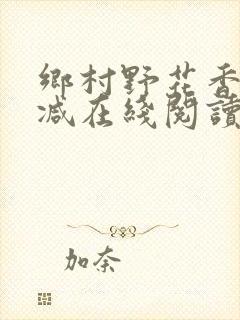 鄉村野花香
减在綫閱讀
加奈